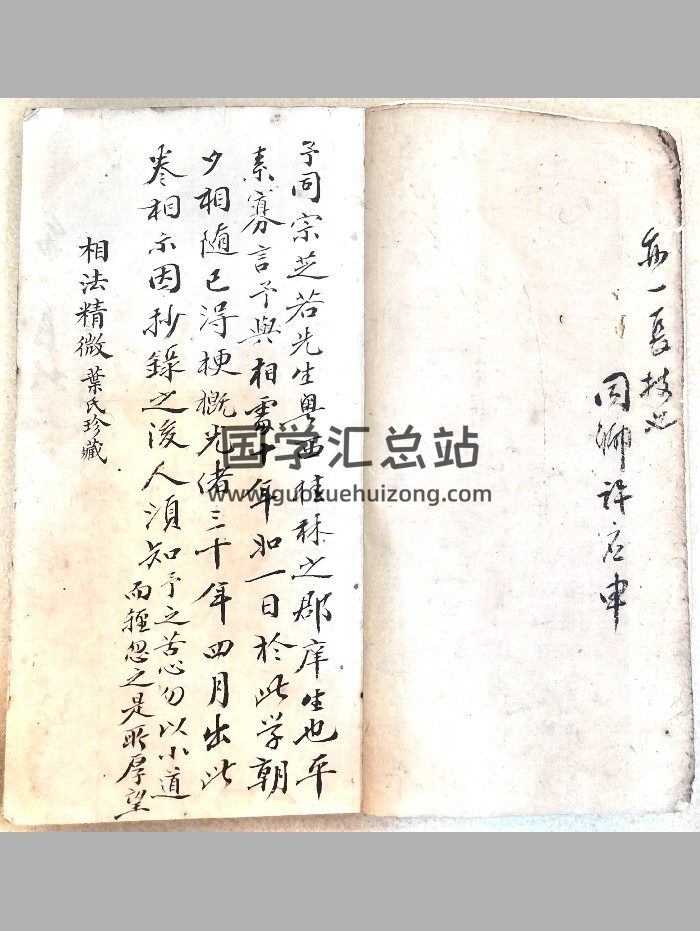 亦一長技也
同鄉許宏申
予同宗芝若先生粵西桂林之郡庠生也平
素寡言予與相處十年如一日於此学朝
夕相随已淂梗概光绪三十年四月出此
卷相示因抄錄之後人須知予之苦心勿以小道
而輕忽之是所厚望
相法精微 葉氏珍藏
国学汇总站
www.guoxuehuizong.com